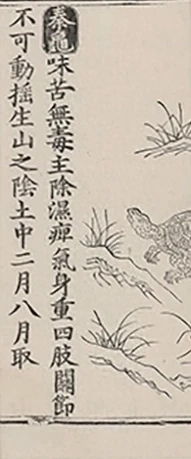 秦龜味苦無毒主除濕痺氣身重四肢關節
不可動搖生山之陰土中二月八月取